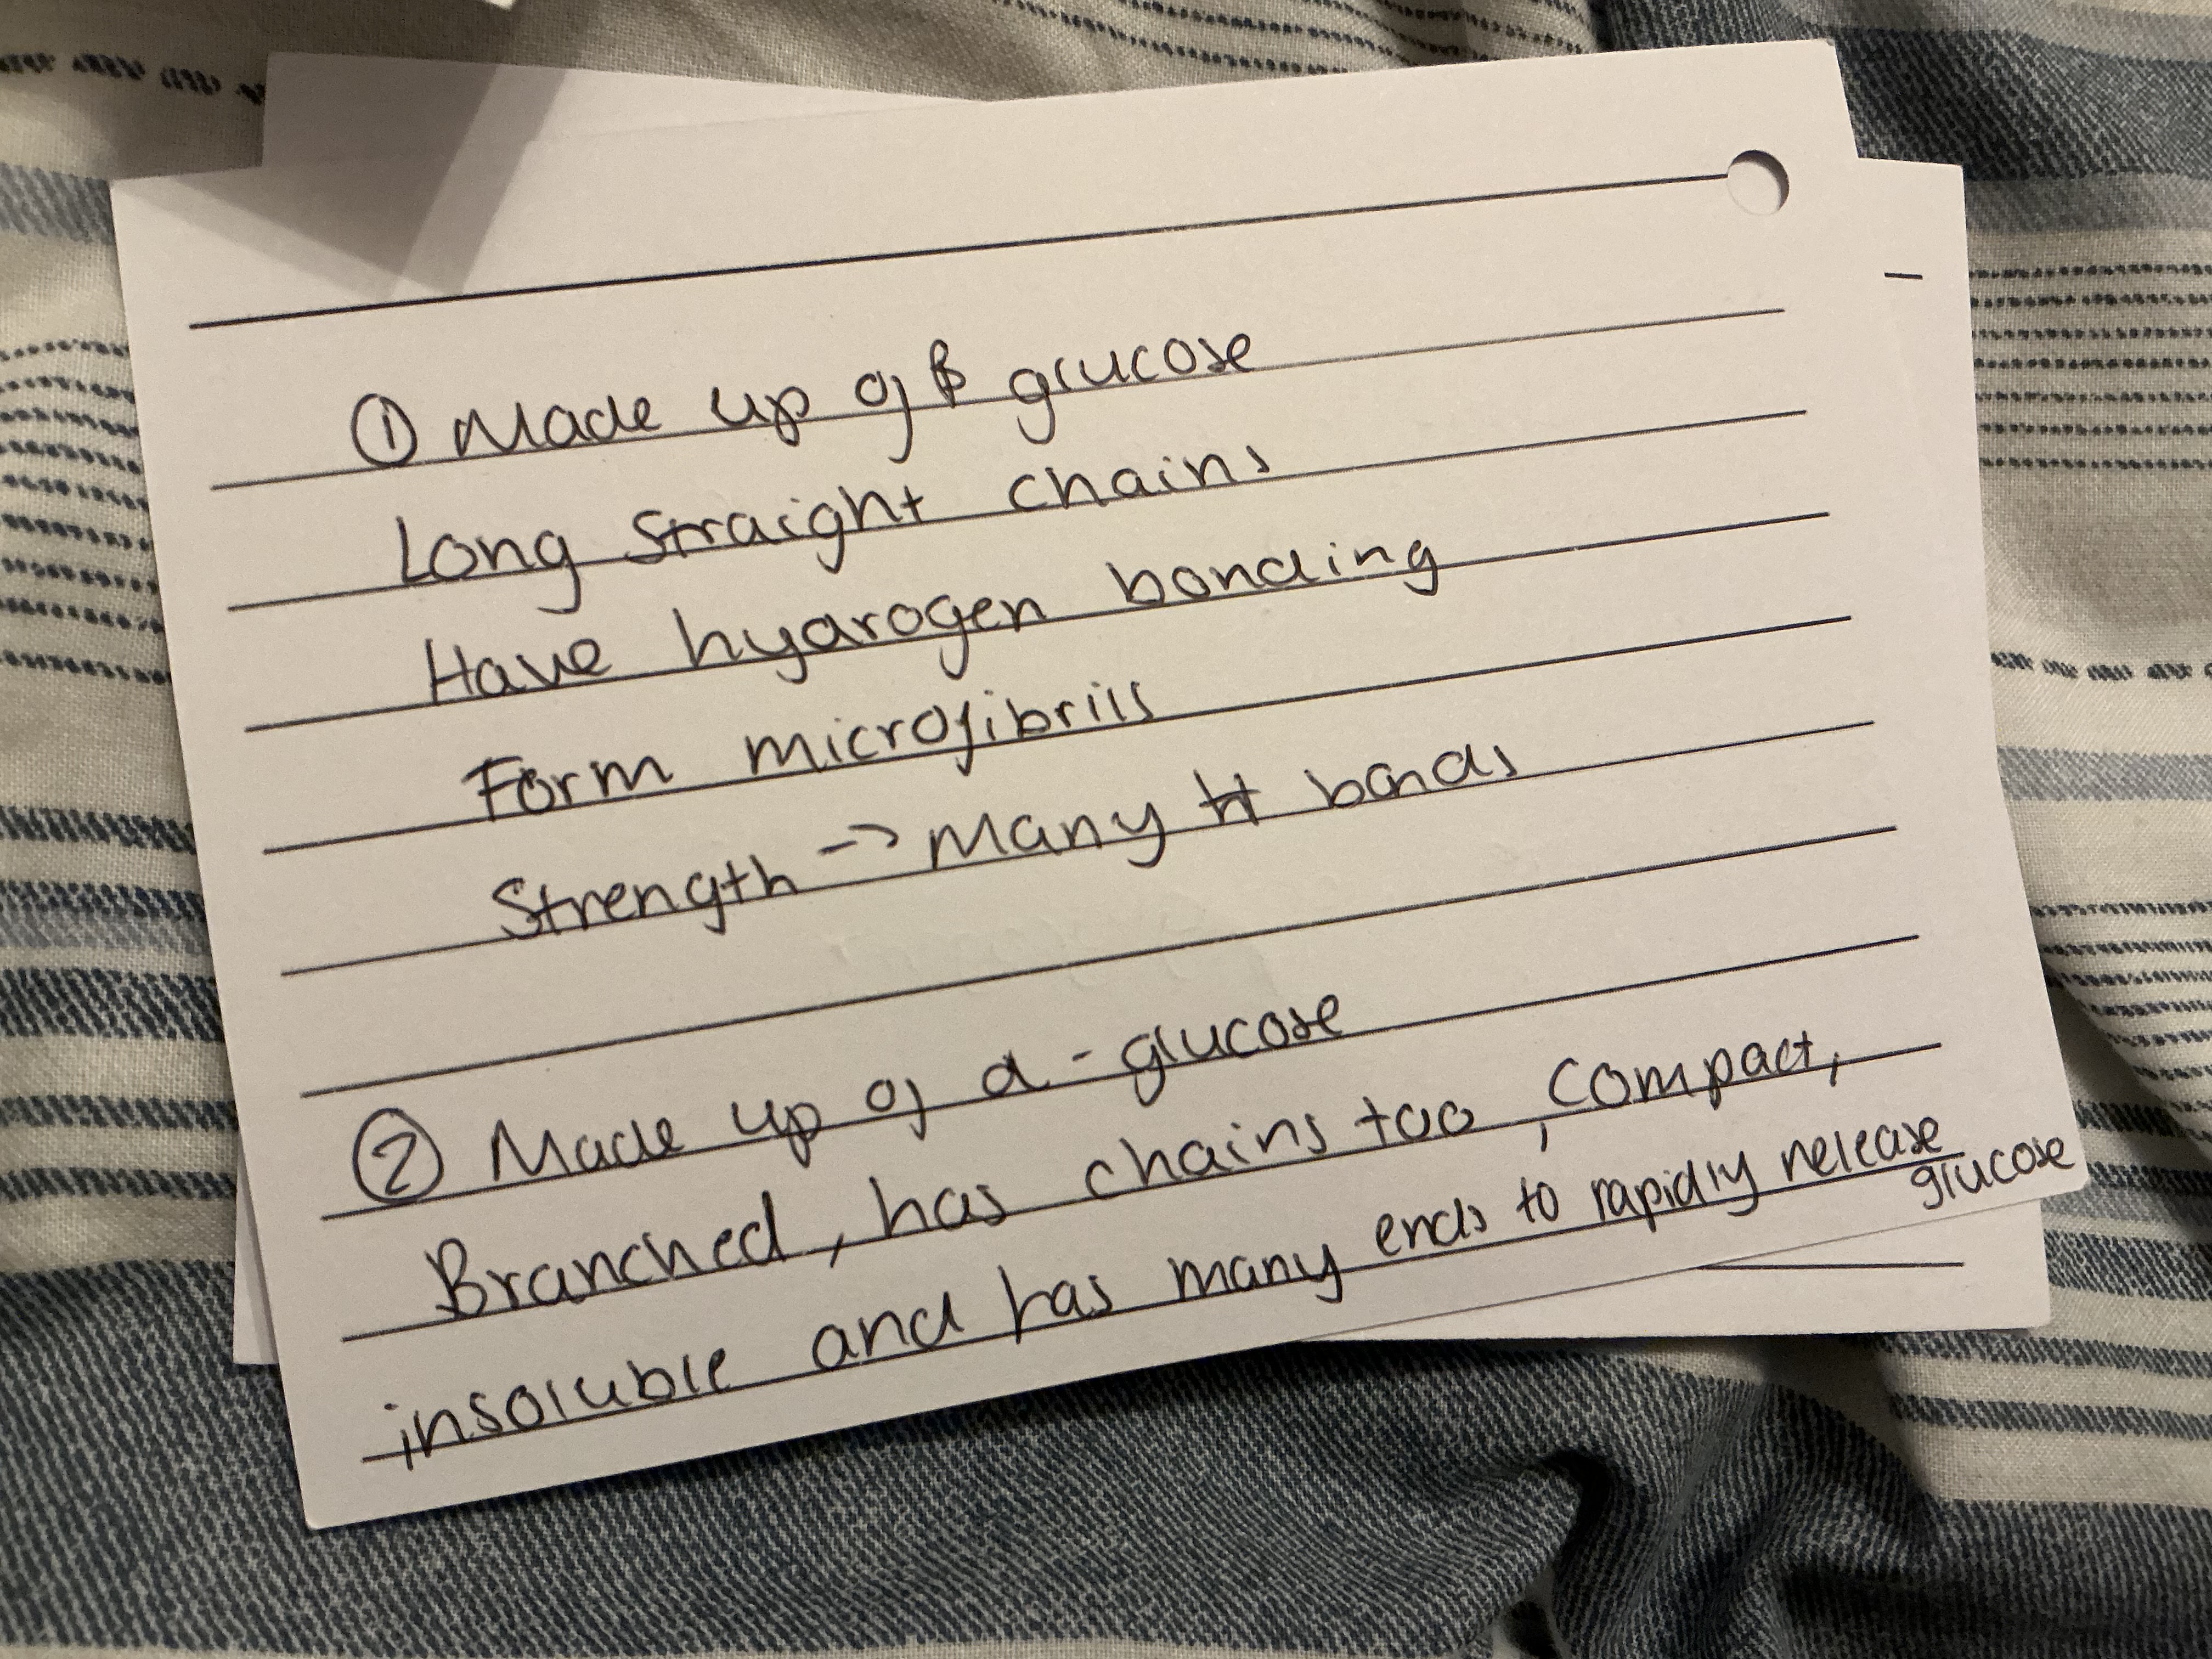 ① Made up of β glucose
Long straight chains
Have hydrogen bonding
Form microfibrils
Strength -> Many H bonds
② Made up of α - glucose
Branched, has chains too, compact,
insoluble and has many ends to rapidly release
glucose